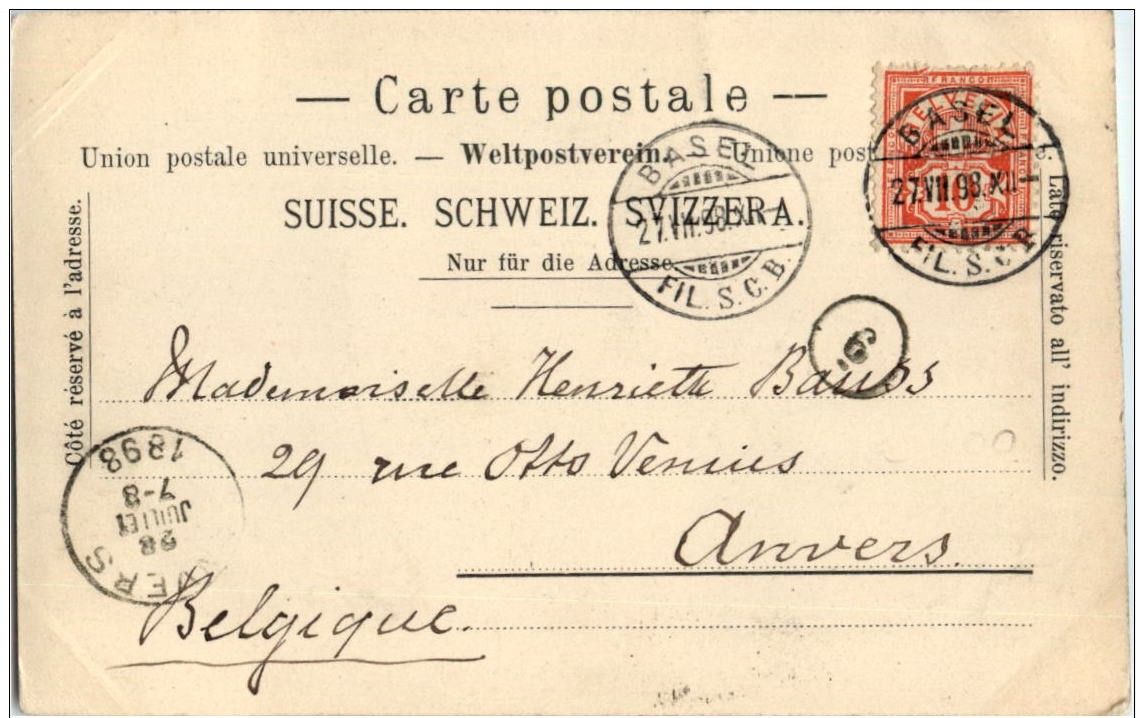 — Carte postale —
Union postale universelle. — Weltpostverein. — Unione post
SUISSE. SCHWEIZ. SVIZZERA.
Nur für die Adresse
Côté réservé à l'adresse.
Lato riservato all' indirizzo.
FRANCO
HELVETIA
10
BASEL
27.VII.98.XII
FIL. S. C. B.
BASEL
27.VII.98.XII
FIL. S. C. B.
6
Mademoiselle Henriette Bauss
29 rue Otto Venius
Anvers.
Belgique.
VERS
28
JUILLET
7-8
1898